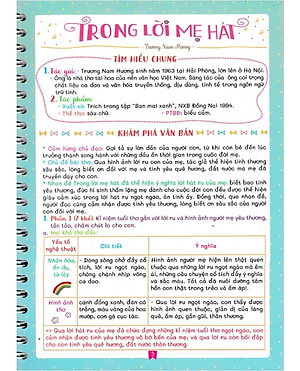 TRONG LỜI MẸ HÁT
- Trương Nam Hương -
TÌM HIỂU CHUNG
1. Tác giả: - Trương Nam Hương sinh năm 1963 tại Hải Phòng, lớn lên ở Hà Nội.
- Ông là nhà thơ tài hoa của nền văn học Việt Nam. Sáng tác của ông coi trọng
chất liệu ca dao và văn hóa truyền thống, dịu dàng, tinh tế trong ngôn ngữ
trữ tình.
2. Tác phẩm:
- Xuất xứ: Trích trong tập "Ban mai xanh", NXB Đồng Nai 1994.
- Thể thơ: sáu chữ.
- PTBĐ: biểu cảm.
KHÁM PHÁ VĂN BẢN
* Cảm hứng chủ đạo: Gợi tả sự lớn dần của người con, từ khi còn bé đến lúc
trưởng thành song hành với những dần của thời gian trong cuộc đời mẹ.
* Chủ đề bài thơ: Qua hình ảnh lời ru con của mẹ, tác giả thể hiện tình thương
sâu sắc, lòng biết ơn đối với mẹ và tình yêu quê hương, đất nước mà mẹ đã
truyền dạy cho con.
* Nhan đề Trong lời mẹ hát đã thể hiện ý nghĩa lời hát ru của mẹ: biết bao tình
yêu thương, đức hi sinh thầm lặng mà mẹ dành cho cuộc đời con đều được thể hiện
giàu cảm xúc trong lời hát ru ngọt ngào, ân tình ấy. Đồng thời, qua nhan đề,
người đọc cũng cảm nhận được tình yêu thương, lòng biết ơn sâu sắc của người
con đối với mẹ.
1. Phần 1 (7 khổ): Kỉ niệm tuổi thơ gắn với lời ru và hình ảnh người mẹ yêu thương,
tần tảo, chăm chút lo cho con.
a. Hai khổ thơ đầu:
Yếu tố nghệ thuật
Chi tiết
Ý nghĩa
Nhân hóa,
ẩn dụ,
từ láy
- Dòng sông chở đầy cổ
tích, lời ru ngọt ngào,
chòng chành nhịp võng
ca dao.
- Hình ảnh người mẹ hiện lên thật quen
thuộc qua những lời ru ngọt ngào mà êm
ái, những câu chuyện cổ tích đầy ý nghĩa
và sắc màu. Tất cả đã nuôi dưỡng tâm
hồn con thật trong trẻo và an yên.
Hình ảnh
thơ
cánh đồng xanh, đàn cò
trắng, màu vàng của hoa
mướp, con gà cục tác.
- Qua lời ru ngọt ngào, con thấy được
hình ảnh quen thuộc, giản dị của làng
quê, ấm áp, thân thương vô cùng.
=> Qua lời hát ru của mẹ đã chứa đựng những kỉ niệm tuổi thơ ngọt ngào, con
cảm nhận được tình yêu thương vô bờ bến của mẹ; và qua lời ru còn bồi đắp
cho con tình yêu quê hương, đất nước thân thương.
3